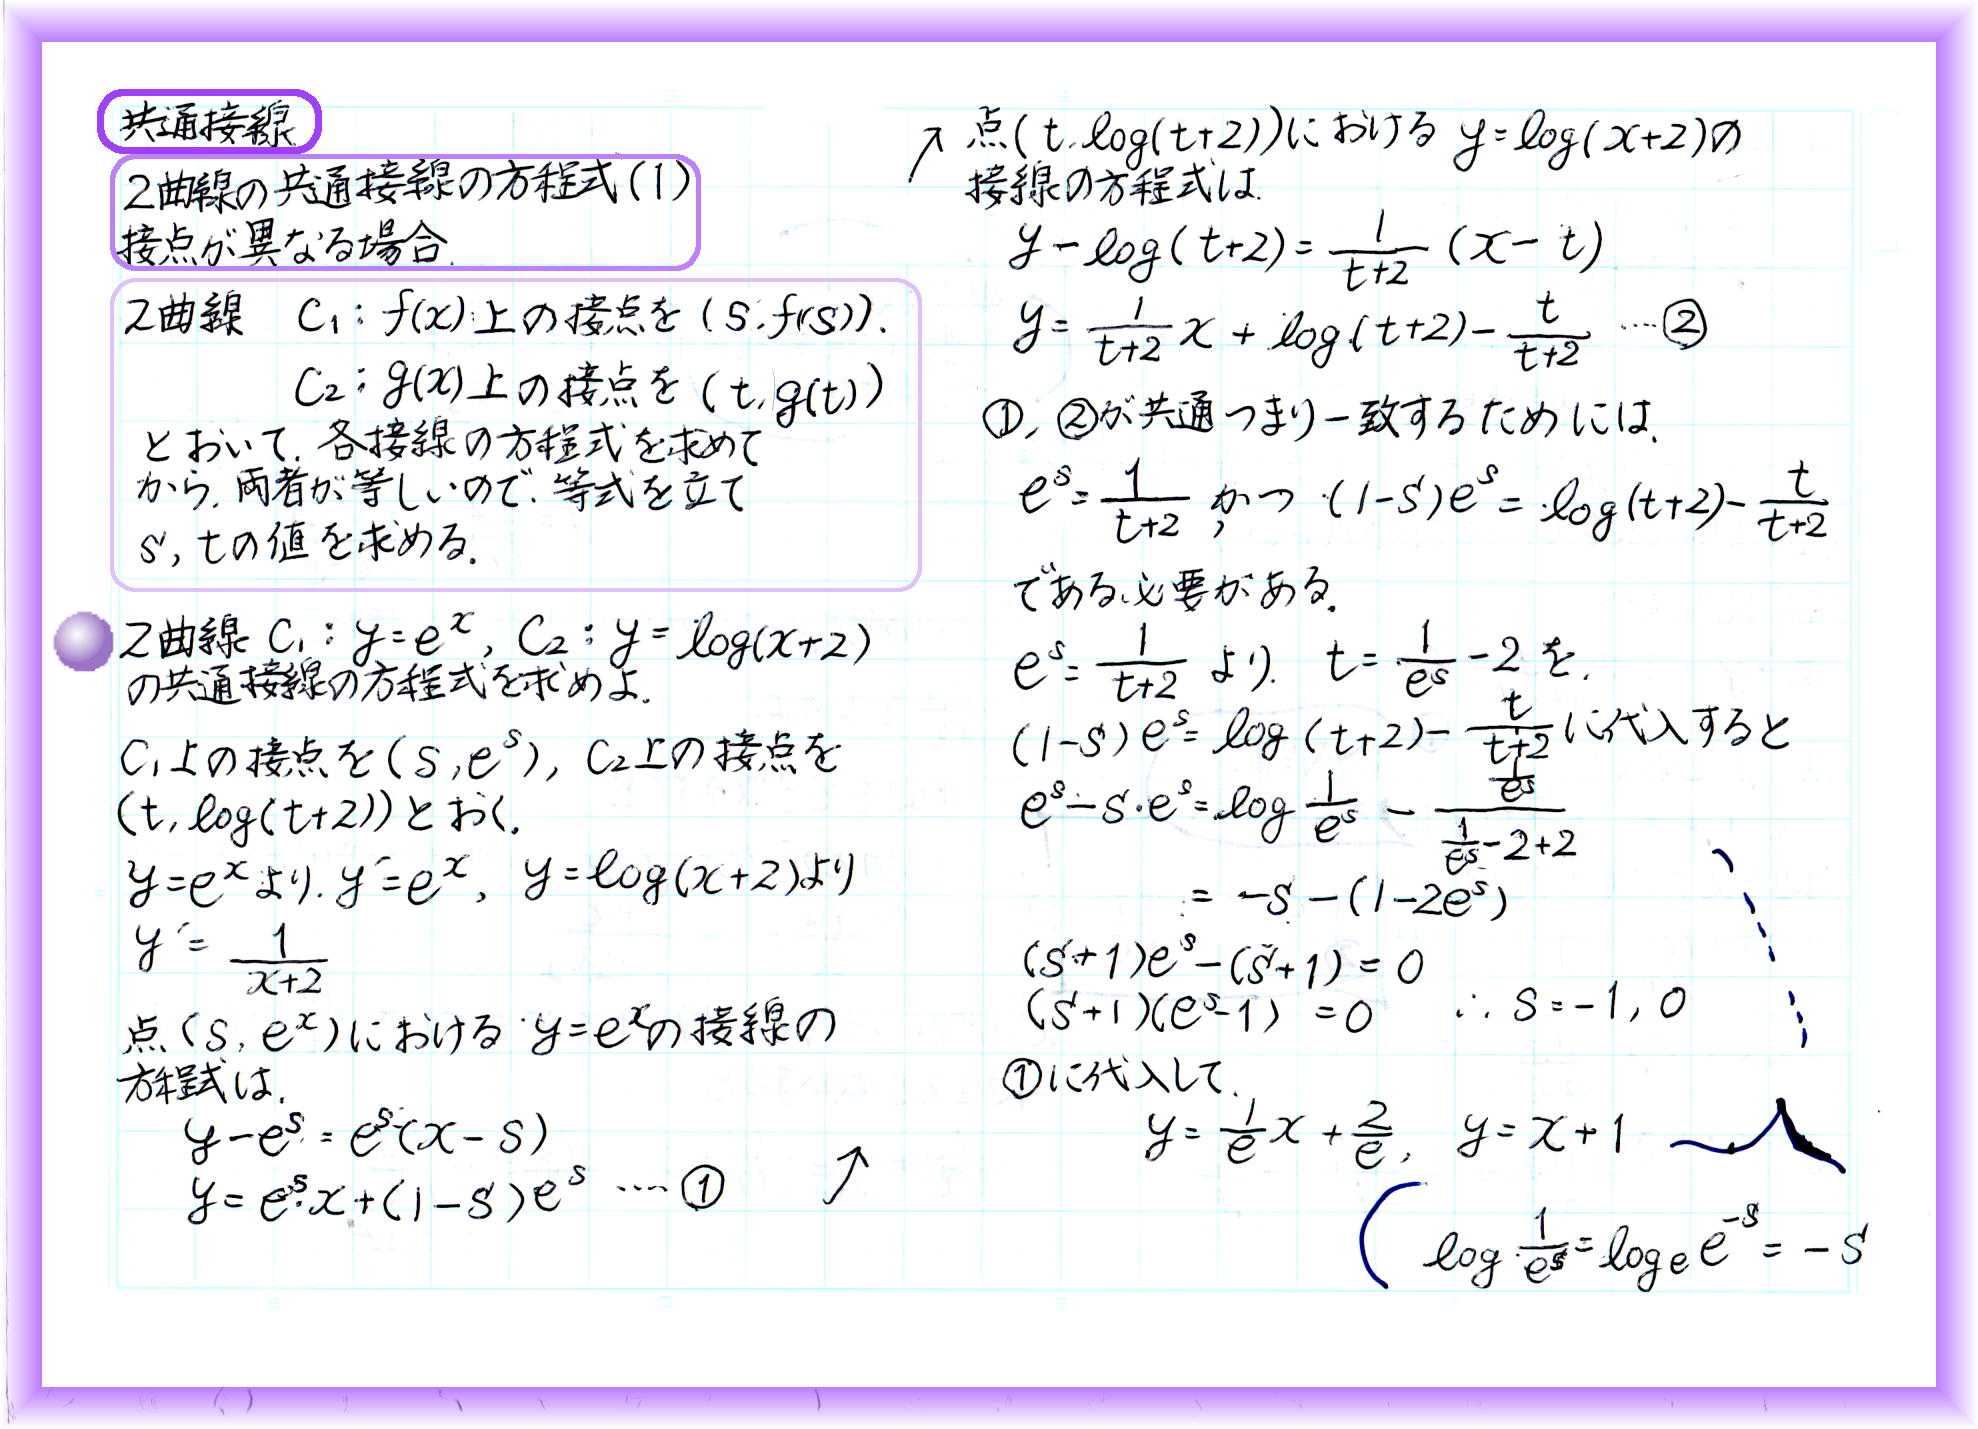 共通接線
2曲線の共通接線の方程式(1)
接点が異なる場合.
2曲線 C₁: f(x)上の接点を (s, f(s)).
C₂: g(x)上の接点を (t, g(t))
とおいて, 各接線の方程式を求めて
から, 両者が等しいので, 等式を立て
s, tの値を求める.
2曲線 C₁: y=eˣ, C₂: y=log(x+2)
の共通接線の方程式を求めよ.
C₁上の接点を(s, eˢ), C₂上の接点を
(t, log(t+2))とおく.
y=eˣより, y´=eˣ, y=log(x+2)より
y´= 1/(x+2)
点(s, eˣ)における y=eˣの接線の
方程式は,
y-eˢ=eˢ(x-s)
y=eˢ·x+(1-s)eˢ ····①
↗
↗ 点(t, log(t+2))における y=log(x+2)の
接線の方程式は,
y-log(t+2)= 1/(t+2) (x-t)
y= 1/(t+2) x+log(t+2)- t/(t+2) ····②
①, ②が共通つまり一致するためには,
eˢ= 1/(t+2) かつ (1-s)eˢ=log(t+2)- t/(t+2)
である必要がある.
eˢ= 1/(t+2) より, t= 1/eˢ -2 を,
(1-s)eˢ=log(t+2)- t/(t+2) に代入すると
eˢ-s·eˢ=log 1/eˢ - (1/eˢ)/(1/eˢ -2+2)
= -s-(1-2eˢ)
(s+1)eˢ-(s+1)=0
(s+1)(eˢ-1)=0 ∴ s=-1, 0
①に代入して,
y= 1/e x+ 2/e, y=x+1
log 1/eˢ = logₑ e⁻ˢ = -s